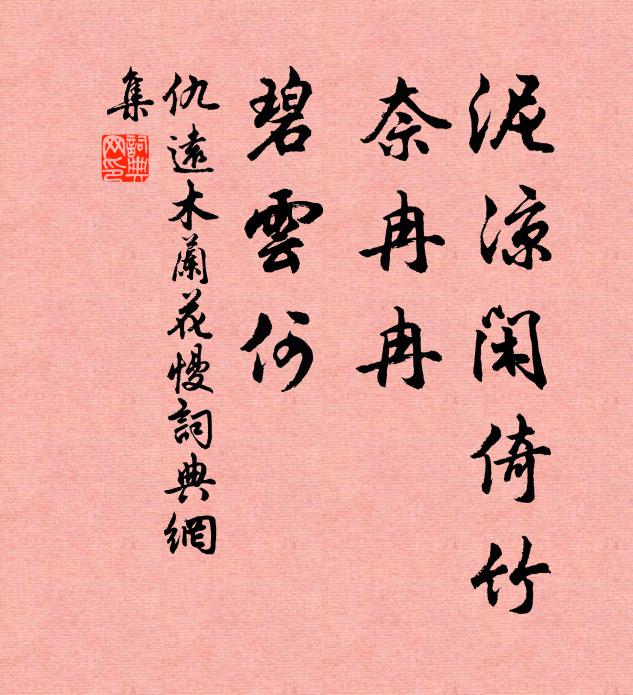 泥涼閑倚竹
奈冉冉
碧雲何
仇遠木蘭花慢詞典網
集
詞典
网印